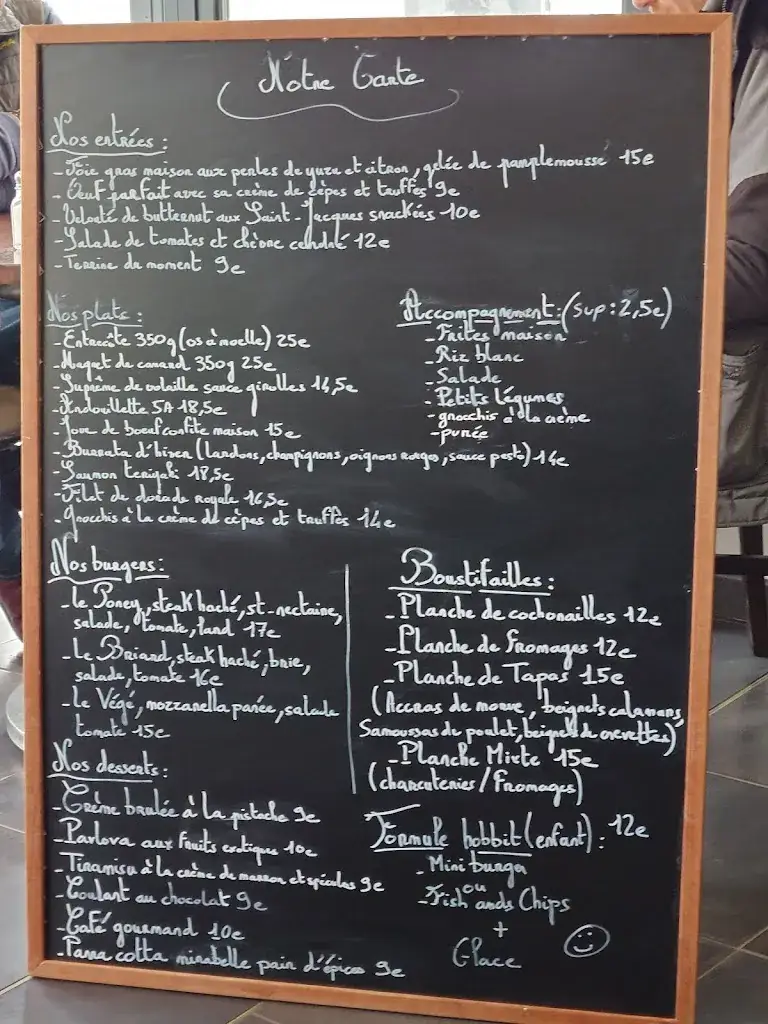 Notre Carte
Nos entrées :
- Foie gras maison aux perles de yuzu et citron, gelée de pamplemousse 15e
- Oeuf parfait avec sa crème de cèpes et truffes 9e
- Velouté de butternut aux Saint-Jacques snackées 10e
- Salade de tomates et chèvre cendré 12e
- Terrine du moment 9e
Nos plats :
- Entrecôte 350g (os à moelle) 25e
- Magret de canard 350g 25e
- Suprême de volaille sauce girolles 14,5e
- Andouillette 5A 18,5e
- Joue de boeuf confite maison 15e
- Burrata d'hiver (lardons, champignons, oignons rouges, sauce pesto) 14e
- Saumon teriyaki 18,5e
- Filet de dorade royale 16,5e
- Gnocchis à la crème de cèpes et truffes 14e
Accompagnement : (sup : 2,5e)
- Frites maison
- Riz blanc
- Salade
- Petits légumes
- gnocchis à la crème
- purée
Nos burgers :
- Le Poney, steak haché, st-nectaire,
salade, tomate, lard 17e
- Le Briand, steak haché, brie,
salade, tomate 16e
- Le Végé, mozzarella panée, salade
tomate 15e
Nos desserts :
- Crème brulée à la pistache 9e
- Pavlova aux fruits exotiques 10e
- Tiramisu à la crème de marron et spéculos 9e
- Coulant au chocolat 9e
- Café gourmand 10e
- Panna cotta mirabelle pain d'épices 9e
Boustifailles :
- Planche de cochonailles 12e
- Planche de fromages 12e
- Planche de Tapas 15e
(Accras de morue, beignets calamars,
Samoussas de poulet, beignets de crevettes)
- Planche Mixte 15e
(charcuteries / fromages)
Formule hobbit (enfant) : 12e
- Mini burger
ou
- Fish ands Chips
+
Glace